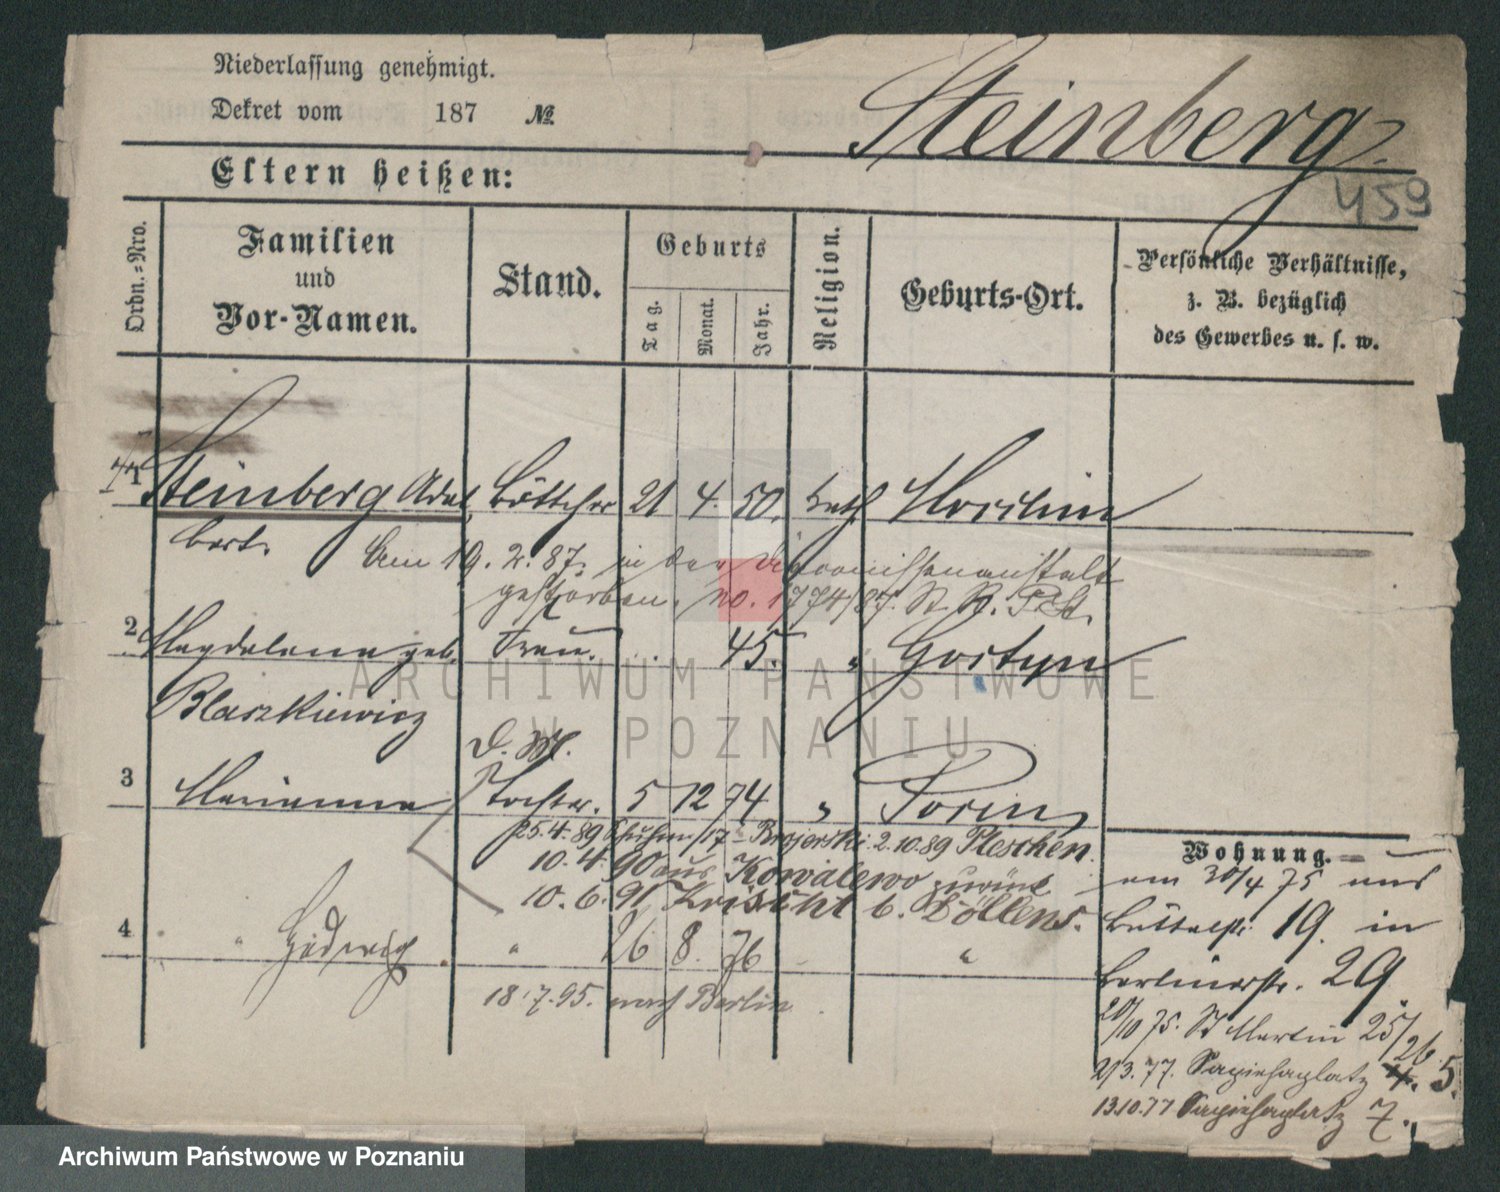 Niederlassung genehmigt.
Dekret vom 187 №
Steinberg.
459
Eltern heißen:
Ordn.=Nro.
Familien
und
Vor-Namen.
Stand.
Geburts
Tag.
Monat.
Jahr.
Religion.
Geburts-Ort.
Persönliche Verhältnisse,
z. B. bezüglich
des Gewerbes u. s. w.
1 Steinberg Adal Böttcher 21 4. 50. kath
bert.
Am 19. 2. 87. in der Diaconissenanstalt
gestorben. no. 1774/87. St. A.
2 Magdalena geb. Frau. 45. " Gostyn
Blaszkiewicz
3 Marianna Tochter. 5 12 74 " Posen
25.4.89 2.10.89 Pleschen.
10. 4. 90 aus Kowalewo zurück
10. 6. 91 b. Döllens.
4 " Hedwig " 26 8. 76 "
18.7.95. nach Berlin
Wohnung.
am 30/4 75 aus
19. in
Berlinerstr. 29.
20/10 75. St Martin 25/26.
2/3. 77. Sapiehaplatz 4. 5.
13.10.77 Sapiehaplatz 7.
ARCHIWUM PAŃSTWOWE
W POZNANIU
Archiwum Państwowe w Poznaniu